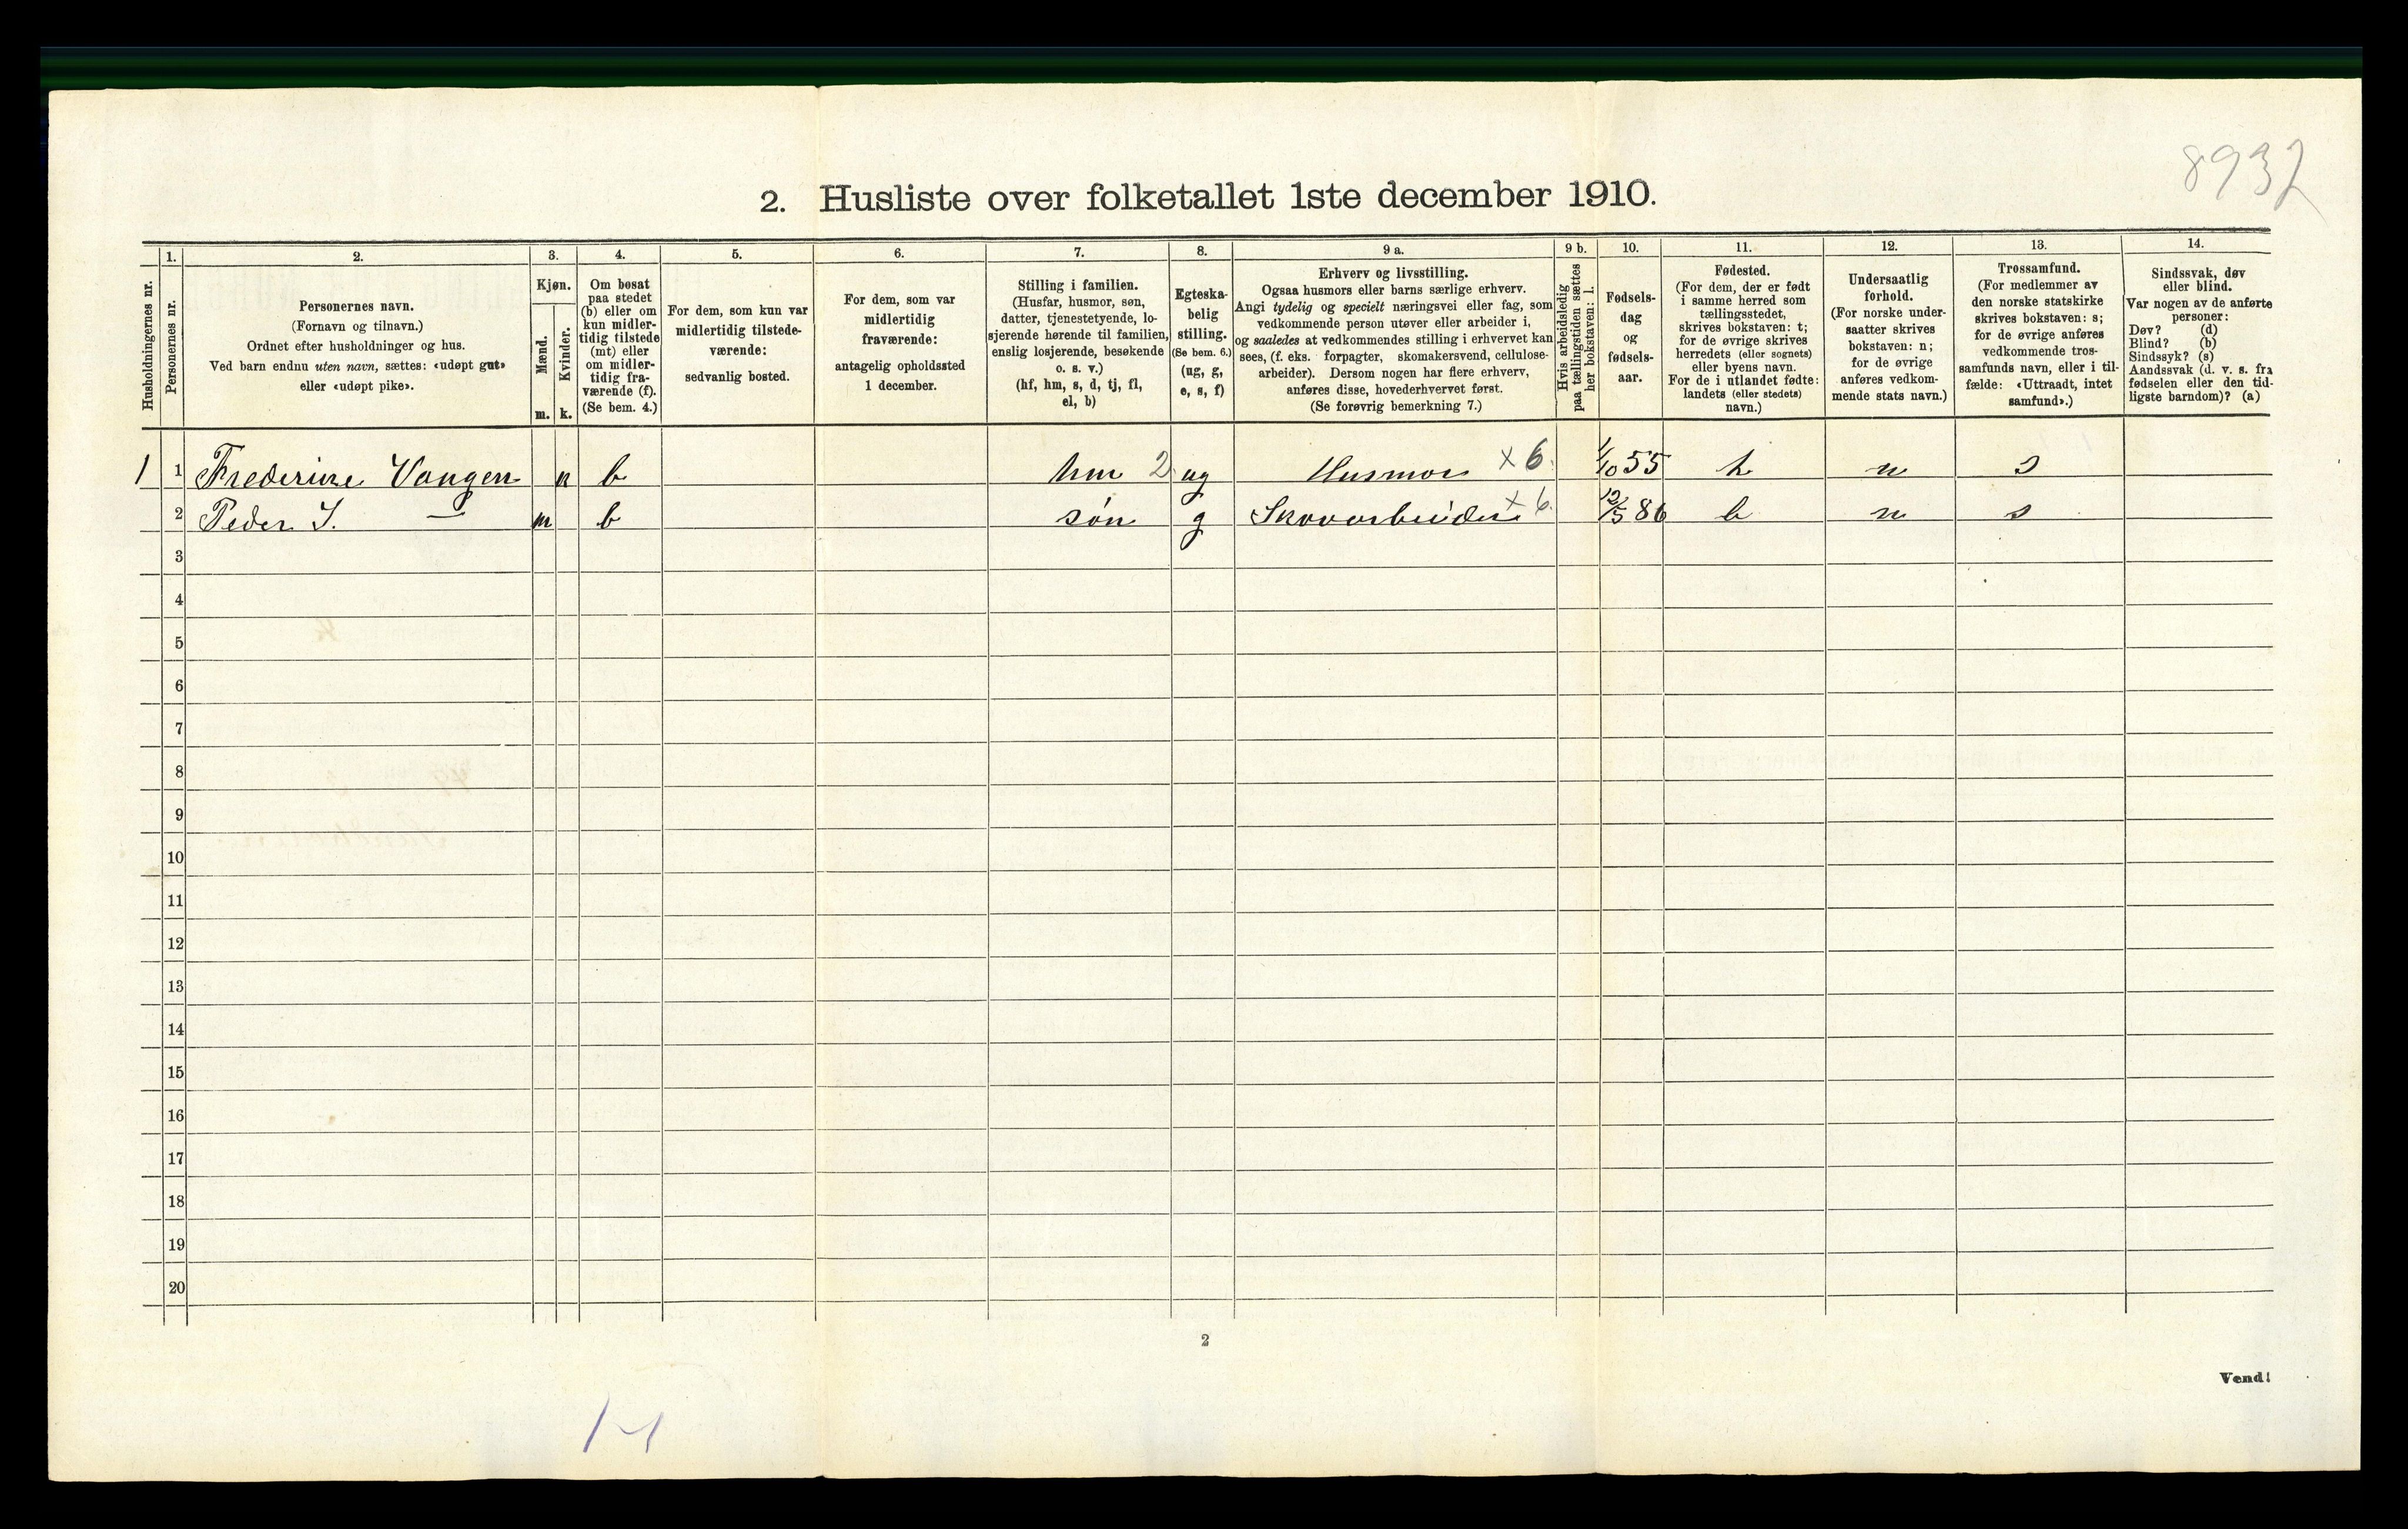 8932
2. Husliste over folketallet 1ste december 1910.
1. 2. 3. 4. 5. 6. 7. 8. 9 a. 9 b. 10. 11. 12. 13. 14.
Husholdningernes nr.
Personernes nr.
Personernes navn.
(Fornavn og tilnavn.)
Ordnet efter husholdninger og hus.
Ved barn endnu uten navn, sættes: «udøpt gut»
eller «udøpt pike».
Kjøn.
Mænd.
Kvinder.
m. k.
Om bosat
paa stedet
(b) eller om
kun midler-
tidig tilstede
(mt) eller
om midler-
tidig fra-
værende (f).
(Se bem. 4.)
For dem, som kun var
midlertidig tilstede-
værende:
sedvanlig bosted.
For dem, som var
midlertidig
fraværende:
antagelig opholdssted
1 december.
Stilling i familien.
(Husfar, husmor, søn,
datter, tjenestetyende, lo-
sjerende hørende til familien,
enslig losjerende, besøkende
o. s. v.)
(hf, hm, s, d, tj, fl,
el, b)
Egteska-
belig
stilling.
(Se bem. 6.)
(ug, g,
e, s, f)
Erhverv og livsstilling.
Ogsaa husmors eller barns særlige erhverv.
Angi tydelig og specielt næringsvei eller fag, som
vedkommende person utøver eller arbeider i,
og saaledes at vedkommendes stilling i erhvervet kan
sees, (f. eks. forpagter, skomakersvend, cellulose-
arbeider). Dersom nogen har flere erhverv,
anføres disse, hovederhvervet først.
(Se forøvrig bemerkning 7.)
Hvis arbeidsledig
paa tællingstiden sættes
her bokstaven: l.
Fødsels-
dag
og
fødsels-
aar.
Fødested.
(For dem, der er født
i samme herred som
tællingsstedet,
skrives bokstaven: t;
for de øvrige skrives
herredets (eller sognets)
eller byens navn.
For de i utlandet fødte:
landets (eller stedets)
navn.)
Undersaatlig
forhold.
(For norske under-
saatter skrives
bokstaven: n;
for de øvrige
anføres vedkom-
mende stats navn.)
Trossamfund.
(For medlemmer av
den norske statskirke
skrives bokstaven: s;
for de øvrige anføres
vedkommende tros-
samfunds navn, eller i til-
fælde: «Uttraadt, intet
samfund».)
Sindssvak, døv
eller blind.
Var nogen av de anførte
personer:
Døv? (d)
Blind? (b)
Sindssyk? (s)
Aandssvak (d. v. s. fra
fødselen eller den tid-
ligste barndom)? (a)
1 1 Frederine Vangen k b hm 2 ug Husmor x 6. 1/10 55 n s
2 Peder I. — m b søn g Skovarbeider x 6. 12/5 86 n s
3
4
5
6
7
8
9
10
11
12
13
14
15
16
17
18
19
20
2
Vend!
1-1